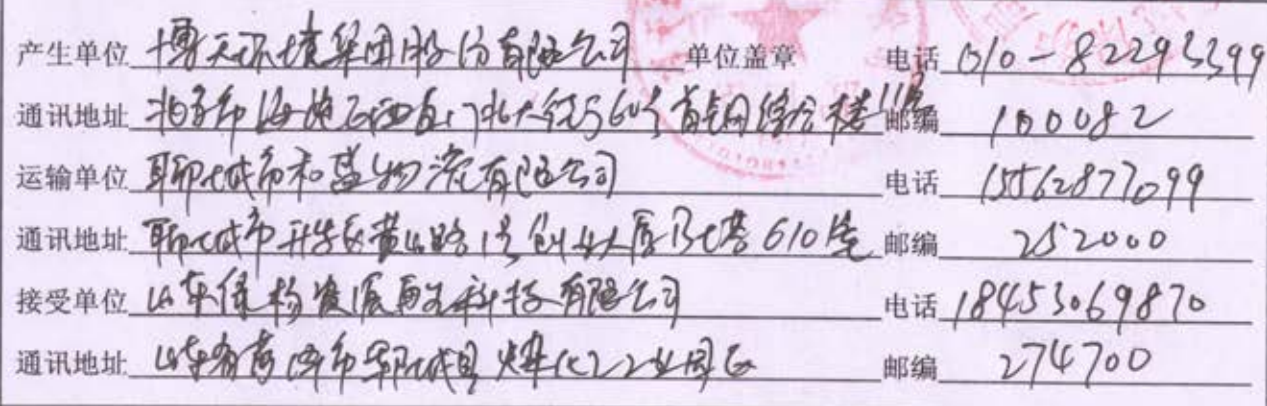 产生单位 博天环境集团股份有限公司 单位盖章 电话 010-82293399
通讯地址 北京市海淀区西直门北大街60号首钢综合楼11层 邮编 100082
运输单位 聊城市和盛物流有限公司 电话 15562877099
通讯地址 聊城市开发区黄山路1号创业大厦B塔610室 邮编 252000
接受单位 山东保杨资源再生科技有限公司 电话 18453069870
通讯地址 山东省菏泽市郓城县煤化工工业园区 邮编 274700